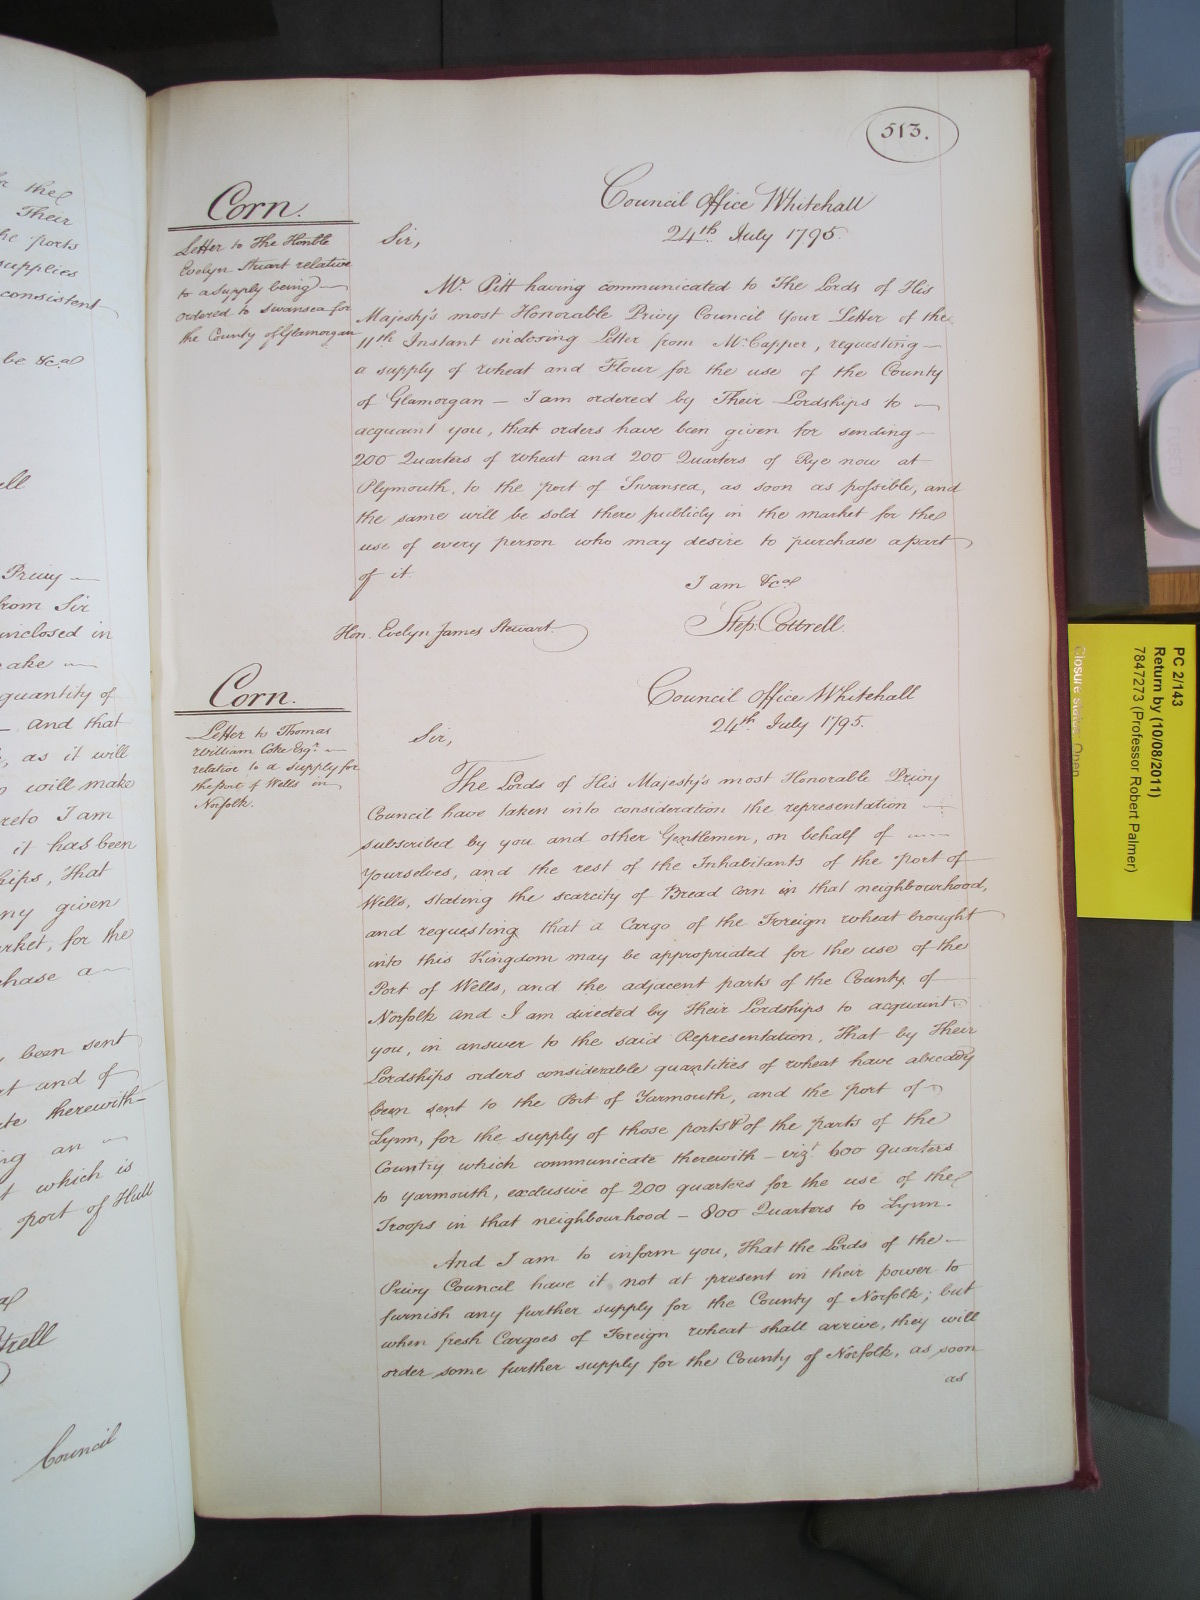 513.
Corn.
Letter to The Honble
Evelyn Stuart relative
to a supply being
ordered to Swansea for
the County of Glamorgan
Council Office Whitehall
24th. July 1795.
Sir,
Mr. Pitt having communicated to The Lords of His
Majesty's most Honorable Privy Council Your Letter of the
11th Instant inclosing Letter from Mr. Capper, requesting
a supply of Wheat and Flour for the use of the County
of Glamorgan — I am ordered by Their Lordships to
acquaint you, that orders have been given for sending
200 Quarters of Wheat and 200 Quarters of Rye now at
Plymouth, to the port of Swansea, as soon as possible, and
the same will be sold there publicly in the market for the
use of every person who may desire to purchase a part
of it.
I am &ca
Step: Cottrell.
Hon. Evelyn James Stewart.
Corn.
Letter to Thomas
William Coke Esqr.
relative to a supply for
the port of Wells in
Norfolk.
Council Office Whitehall
24th. July 1795.
Sir,
The Lords of His Majesty's most Honorable Privy
Council have taken into consideration the representation
subscribed by you and other Gentlemen, on behalf of
Yourselves, and the rest of the Inhabitants of the Port of
Wells, stating the scarcity of Bread Corn in that neighbourhood,
and requesting that a Cargo of the Foreign Wheat brought
into this Kingdom may be appropriated for the use of the
Port of Wells, and the adjacent parts of the County of
Norfolk and I am directed by Their Lordships to acquaint
you, in answer to the said Representation, That by Their
Lordships orders considerable quantities of Wheat have already
been sent to the Port of Yarmouth, and the port of
Lynn, for the supply of those ports & of the parts of the
Country which communicate therewith – vizt. 600 quarters
to Yarmouth, exclusive of 200 quarters for the use of the
Troops in that neighbourhood – 800 Quarters to Lynn.
And I am to inform you, That the Lords of the
Privy Council have it not at present in their power to
furnish any further supply for the County of Norfolk; but
when fresh Cargoes of Foreign Wheat shall arrive, they will
order some further supply for the County of Norfolk, as soon
as
the
Their
ports
supplies
consistent
be &ca
Privy
from Sir
inclosed in
quantity of
and that
as it will
will make
I am
it has been
That
given
for the
been sent
and of
therewith
an
which is
port of Hull
Council
PC 2/143
Return by (10/08/2011)
7847273 (Professor Robert Palmer)
Closure status: Open